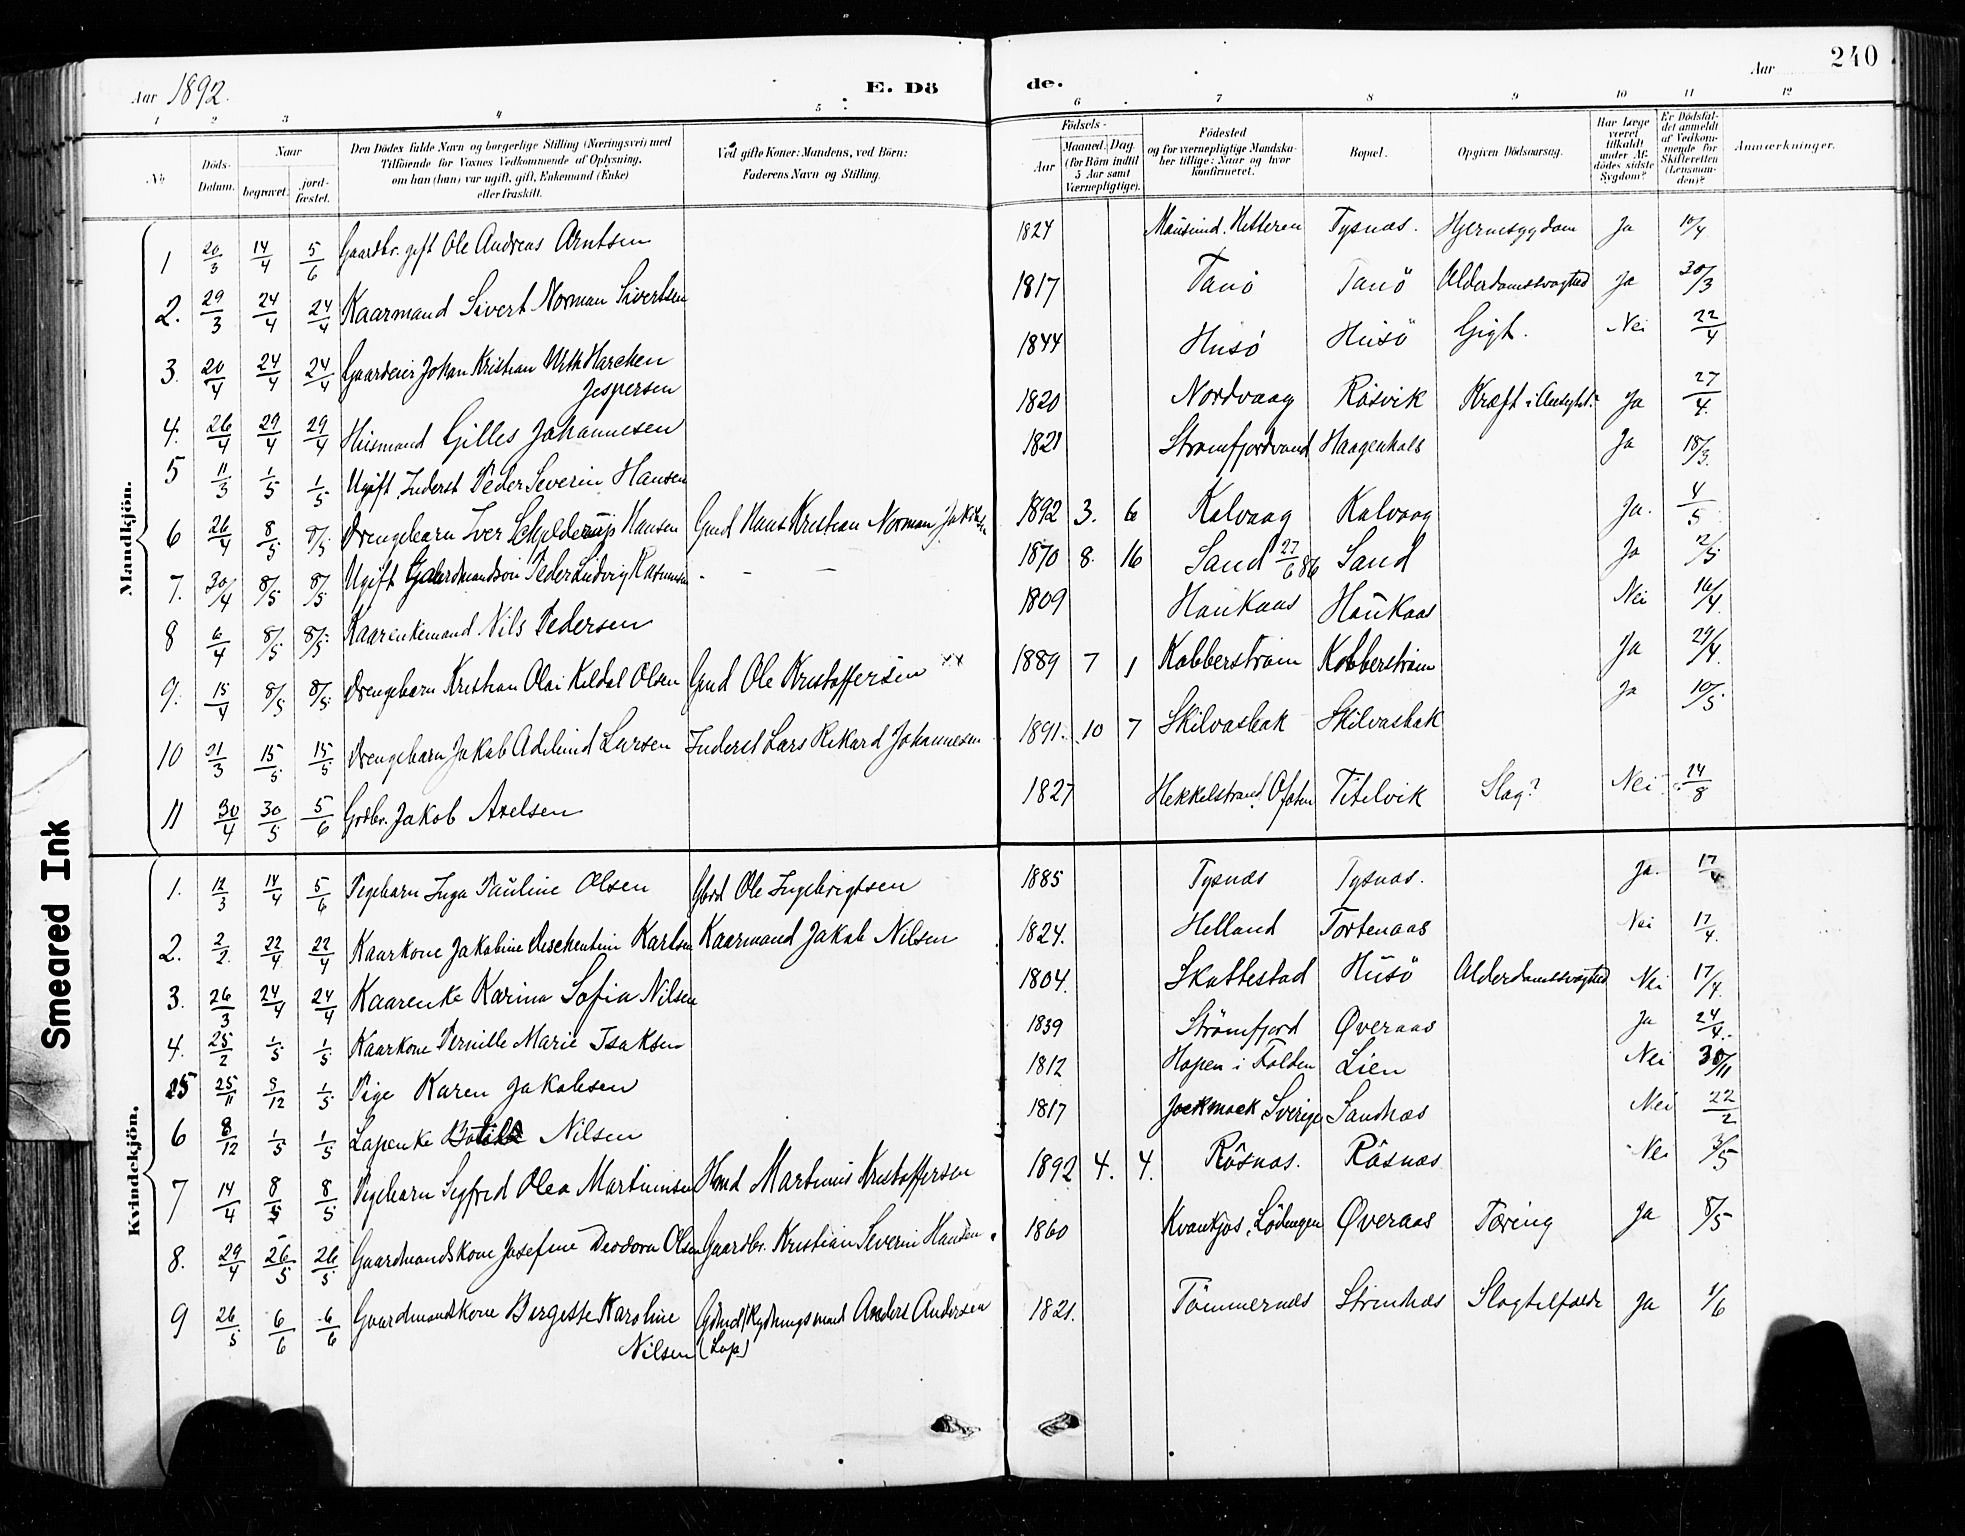 Aar 1892.
E. Dö
de.
Aar
240
1 2 3 4 5 6 7 8 9 10 11 12
No
Döds-Datum.
Naar
begravet.
jord-fæstet.
Den Dödes fulde Navn og borgerlige Stilling (Næringsvei) med
Tilföiende for Voxnes Vedkommende af Oplysning,
om han (hun) var ugift, gift, Enkemand (Enke)
eller fraskilt.
Ved gifte Koner: Mandens, ved Börn:
Faderens Navn og Stilling.
Födsels-
Aar
Maaned. Dag.
(for Börn indtil
5 Aar samt
Værnepligtige).
Födested
og for værnepligtige Mandska-
ber tillige: Naar og hvor
konfirmeret.
Bopæl.
Opgiven Dödsaarsag.
Har Læge
været
tilkaldt
under Af-
dödes sidste
Sygdom?
Er Dödsfal-
det anmeldt
af Vedkom-
mende for
Skifteretten
(Lensman-
den)?
Anmærkninger.
Mandkjön.
1 20/3 14/4 5/6 Gaardbr. gift Ole Andreas Arntsen 1824 Mausund. Hitteren Tysnæs. Hjernesygdom Ja 10/4
2. 29/3 24/4 24/4 Kaarmand Sivert Norman Sivertsen 1817 Tanö Tanö Alderdomssvaghed Ja 30/3
3. 20/4 24/4 24/4 Gaardeier Johan Kristian
Jespersen 1844 Husö Husö Gigt. Nei 22/4
4. 26/4 29/4 29/4 Huismand Gilles Johannesen 1820 Nordvaag Räsvik Kræft i Ansigt. Ja 27/4
5 11/3 1/5 1/5 Ugift Inderst Peder Severin Hansen 1821 Haagenhals Ja 18/3
6 26/4 8/5 8/5 Drengebarn Iver Schjelderup Hansen Gmd Hans Kristian Norman 1892 3. 6 Kalvaag Kalvaag Ja. 4/5
7. 30/4 8/5 8/5 Ugift Gaardmandsön Peder Ludvig Rasmussen - - - 1870 8. 16 Sand 27/6 86 Sand Ja 2/5
8 6/4 8/5 8/5 Kaarenkemand Nils Pedersen 1809 Haukaas Haukaas Nei 16/4
9. 15/4 8/5 8/5 Drengebarn Kristian Olai Kildal Olsen Gmd Ole Kristoffersen 1889 7 1 Kobberström Kobberström Ja 29/4
10 21/3 15/5 15/5 Drengebarn Jakob Larsen Inderst Lars Rikard Johannesen 1891. 10 7 Skilvasbak Skilvasbak Ja 10/5
11 30/4 30/5 5/6 Grdbr. Jakob Axelsen 1827 Hekkelstrand, Ofoten Titelvik Slag? Nei 24/8
Kvindekjön.
1. 12/3 14/4 5/6 Pigebarn Inga Pauline Olsen Ole Ingebrigtsen 1885 Tysnæs Tysnæs. Ja. 17/4
2. 2/2 22/4 22/4 Kaarkone Jakobine Karlsen Kaarmand Jakob Nilsen 1824. Helland Tortenaas Nei 17/4
3. 26/3 24/4 24/4 Kaarenke Karina Sofia Nilsen 1804. Skattestad Husö Alderdomssvaghed Nei 17/4
4. 25/2 1/5 1/5 Kaarkone Pernille Marie Isaksen 1839 Strömfjord Øveraas Ja 24/4
5 25/11 9/12 1/5 Pige Karen Jakobsen 1812 Hopen i Folden Lien Nei 30/11
6 8/12 1/5 1/5 Lapenke Nilsen 1817 Jockmock Sverige Sandnæs Nei 22/2
7 14/4 8/5 8/5 Pigebarn Sigfred Olea Martinusen Hmd Martinus Kristoffersen 1892 4. 4. Räsnæs. Räsnæs Nei 3/5
8. 29/4 26/5 26/5 Gaardmandskone Josefine Deodora Olsen Gaardbr. Kristian Severin Hansen 1860 Kvankjos, Lödingen Øveraas Tæring Ja 8/5
9 26/5 6/6 6/6 Gaardmandskone Birgette Karoline
Nilsen Rydningsmand Anders Andersen
(Lap) 1821. Tömmernes Slagtilfælde Ja 1/6
Smeared Ink